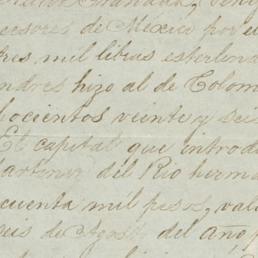 cesores de Mexico por el
tres mil libras esterlina
ondres hizo al de Colom
hocientos veinte y seis
El capital que introdu
artinez del Rio herma
cuenta mil pesos, valo
uis de Agost del año p